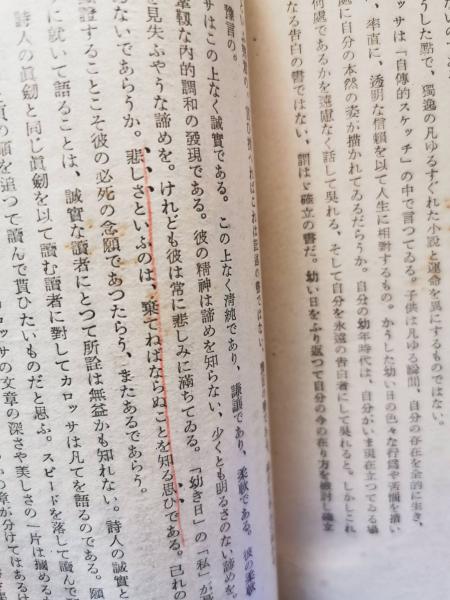 うした點で、獨逸の凡ゆるすぐれた小説と運命を異にするものではない。
ロッサは「自傳的スケッチ」の中で言つてゐる。子供は凡ゆる瞬間、自分の存在を全的に生き、
、率直に、透明な信頼を以て人生に相對するもの。かうした幼い日の色々な行爲や苦惱を描い
處に自分の本然の姿が描かれてゐるだらうか。自分の幼年時代は、自分がいま現在立つてゐる場
何處であるかを遠慮なく話して呉れる、そして自分を永遠の告白者にして呉れると。しかしこれ
なる告白の書ではない、謂はゞ確立の書だ。幼い日をふり返つて自分の今の在り方を檢討し確立
豫言の。
ッサはこの上なく誠實である。この上なく清純であり、謙讓であり、柔軟である。彼の柔軟
強靱な内的調和の發現である。彼の精神は諦めを知らない、少くとも明るさのない諦めを、
を見失ふやうな諦めを。けれども彼は常に悲しみに滿ちてゐる。「幼き日」の「私」が
ないであらうか。悲しさといふのは、棄てねばならぬことを知る思ひである。己れの
證することこそ彼の必死の念願であつたらう、またあるであらう。
に就いて語ることは、誠實な讀者にとつて所詮は無益かも知れない。詩人の誠實と
詩人の眞劍と同じ眞劍を以て讀む讀者に對してカロッサは凡てを語るのである。願
の顏を追つて讀んで貰ひたいものだと思ふ。スピードを落して讀んで
カロッサの文章の深さや美しさの一片は摘めるも
の章が分けてはあるは